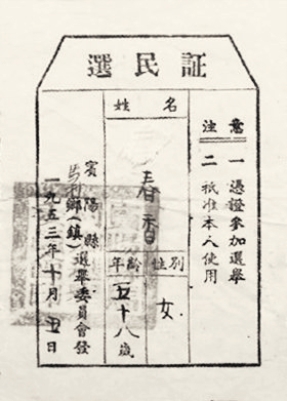 選民証
注意
一 憑證參加選舉
二 祇准本人使用
姓名
春香
性別
女
年齡
五十八歲
賓陽縣
鄉(鎮)選舉委員會發
一九五三年十月五日